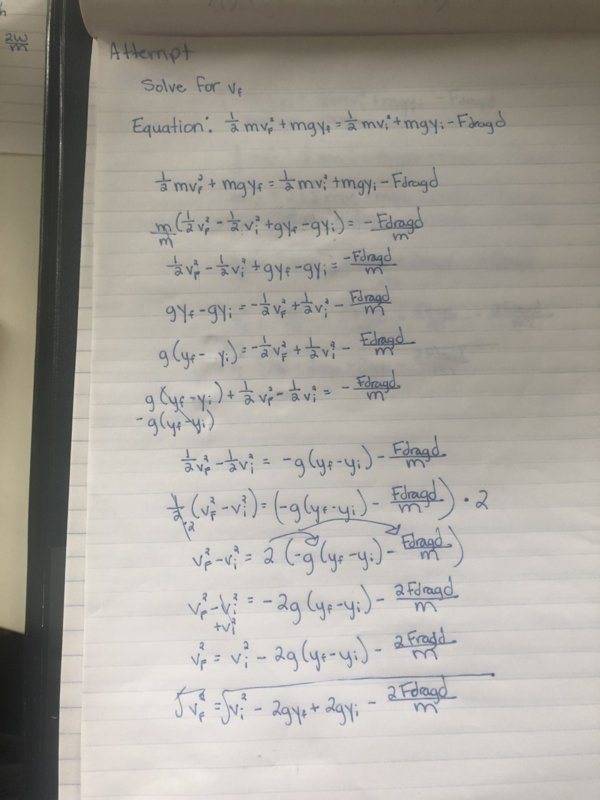 2w/m
Attempt
Solve for v_f
Equation: 1/2 mv_f² + mgy_f = 1/2 mv_i² + mgy_i - Fdragd
1/2 mv_f² + mgy_f = 1/2 mv_i² + mgy_i - Fdragd
m/m (1/2 v_f² - 1/2 v_i² + gy_f - gy_i) = - Fdragd/m
1/2 v_f² - 1/2 v_i² + gy_f - gy_i = -Fdragd/m
gy_f - gy_i = -1/2 v_f² + 1/2 v_i² - Fdragd/m
g(y_f - y_i) = -1/2 v_f² + 1/2 v_i² - Fdragd/m
g(y_f - y_i) + 1/2 v_f² - 1/2 v_i² = - Fdragd/m
-g(y_f - y_i)
1/2 v_f² - 1/2 v_i² = -g(y_f - y_i) - Fdragd/m
1/2 (v_f² - v_i²) = (-g(y_f - y_i) - Fdragd/m) • 2
•2
v_f² - v_i² = 2 (-g(y_f - y_i) - Fdragd/m)
v_f² - v_i² = -2g(y_f - y_i) - 2Fdragd/m
+v_i²
v_f² = v_i² - 2g(y_f - y_i) - 2Fragd/m
√v_f² = √v_i² - 2gy_f + 2gy_i - 2Fdragd/m